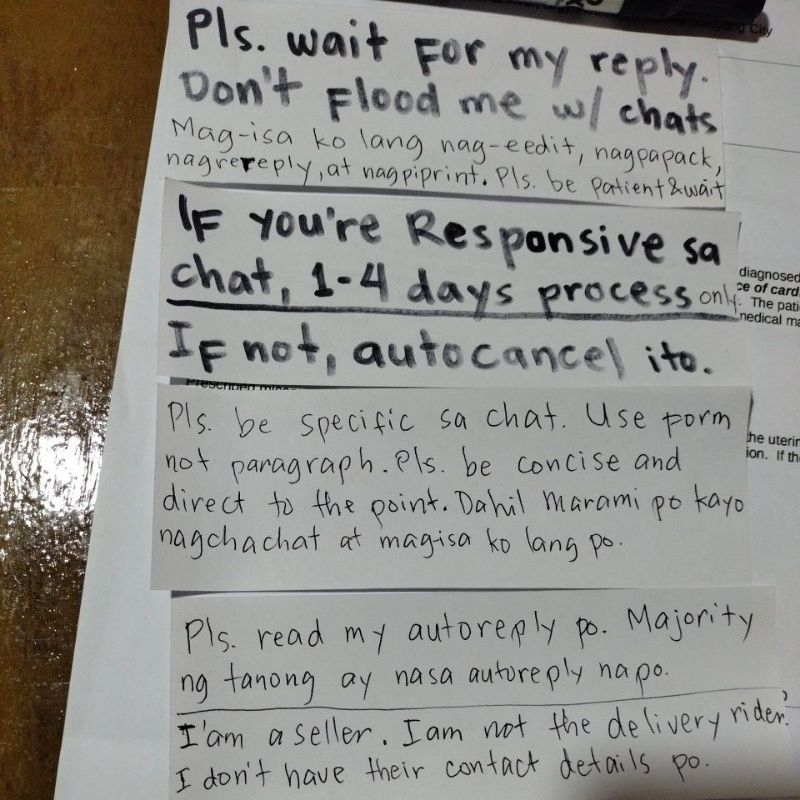 City
Pls. wait for my reply.
Don't Flood me w/ chats
Mag-isa ko lang nag-eedit, nagpapack,
nagrereply, at nagpiprint. Pls. be patient & wait
If you're Responsive sa
chat, 1-4 days process only.
If not, autocancel ito.
diagnosed
ce of card
. The pati
medical ma
Pls. be specific sa chat. Use form
not paragraph. Pls. be concise and
direct to the point. Dahil Marami po kayo
nagchachat at magisa ko lang po.
he uterin
ion. If the
Pls. read my autoreply po. Majority
ng tanong ay nasa autoreply na po.
I'am a seller. I am not the delivery rider.
I don't have their contact details po.